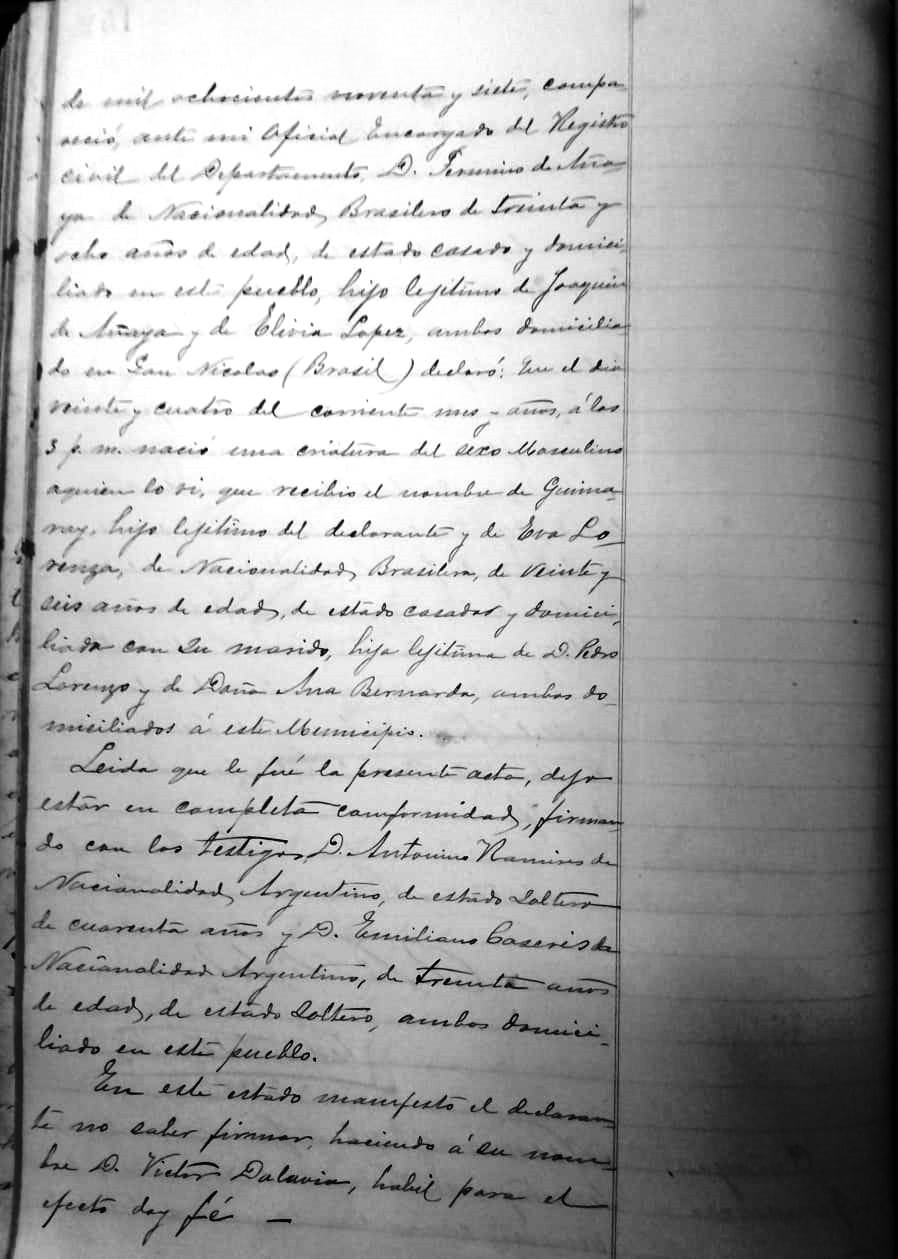 de mil ochocientos noventa y siete, compa
reció, ante mi Oficial Encargado del Registro
civil del Departamento, D. Fermino de Aña-
ya de Nacionalidad Brasilero de treinta y
ocho años de edad, de estado casado y domici-
liado en este pueblo, hijo lejitimo de Joaquin
de Añaya y de Elivia Lopez, ambos domicilia-
do en San Nicolas (Brasil) declaró: Que el dia
veinte y cuatro del corriente mes y años, á las
3 p. m. nació una criatura del sexo Masculino
aquien lo vi, que recibio el nombre de Guima-
ray, hijo lejitimo del declarante y de Eva Lo-
renza, de Nacionalidad Brasilera, de veinte y
seis años de edad, de estado casadas y domici-
liada con su marido, hija lejitima de D. Pedro
Lorenzo y de Doña Ana Bernarda, ambos do-
miciliados á este Municipio.
Leida que le fué la presente acta, dijo
estar en completa comformidad, firman-
do con los testigos D. Antonino Ramires de
Nacionalidad Argentino, de estado Soltero
de cuarenta años y D. Emiliano Caseris de
Nacionalidad Argentino, de treinta años
de edad, de estado Soltero, ambos domici-
liado en este pueblo.
En este estado manifestó el declaran-
te no saber firmar, haciendo á su nom-
bre D. Victor Dalavia, habil para el
efecto doy fé —